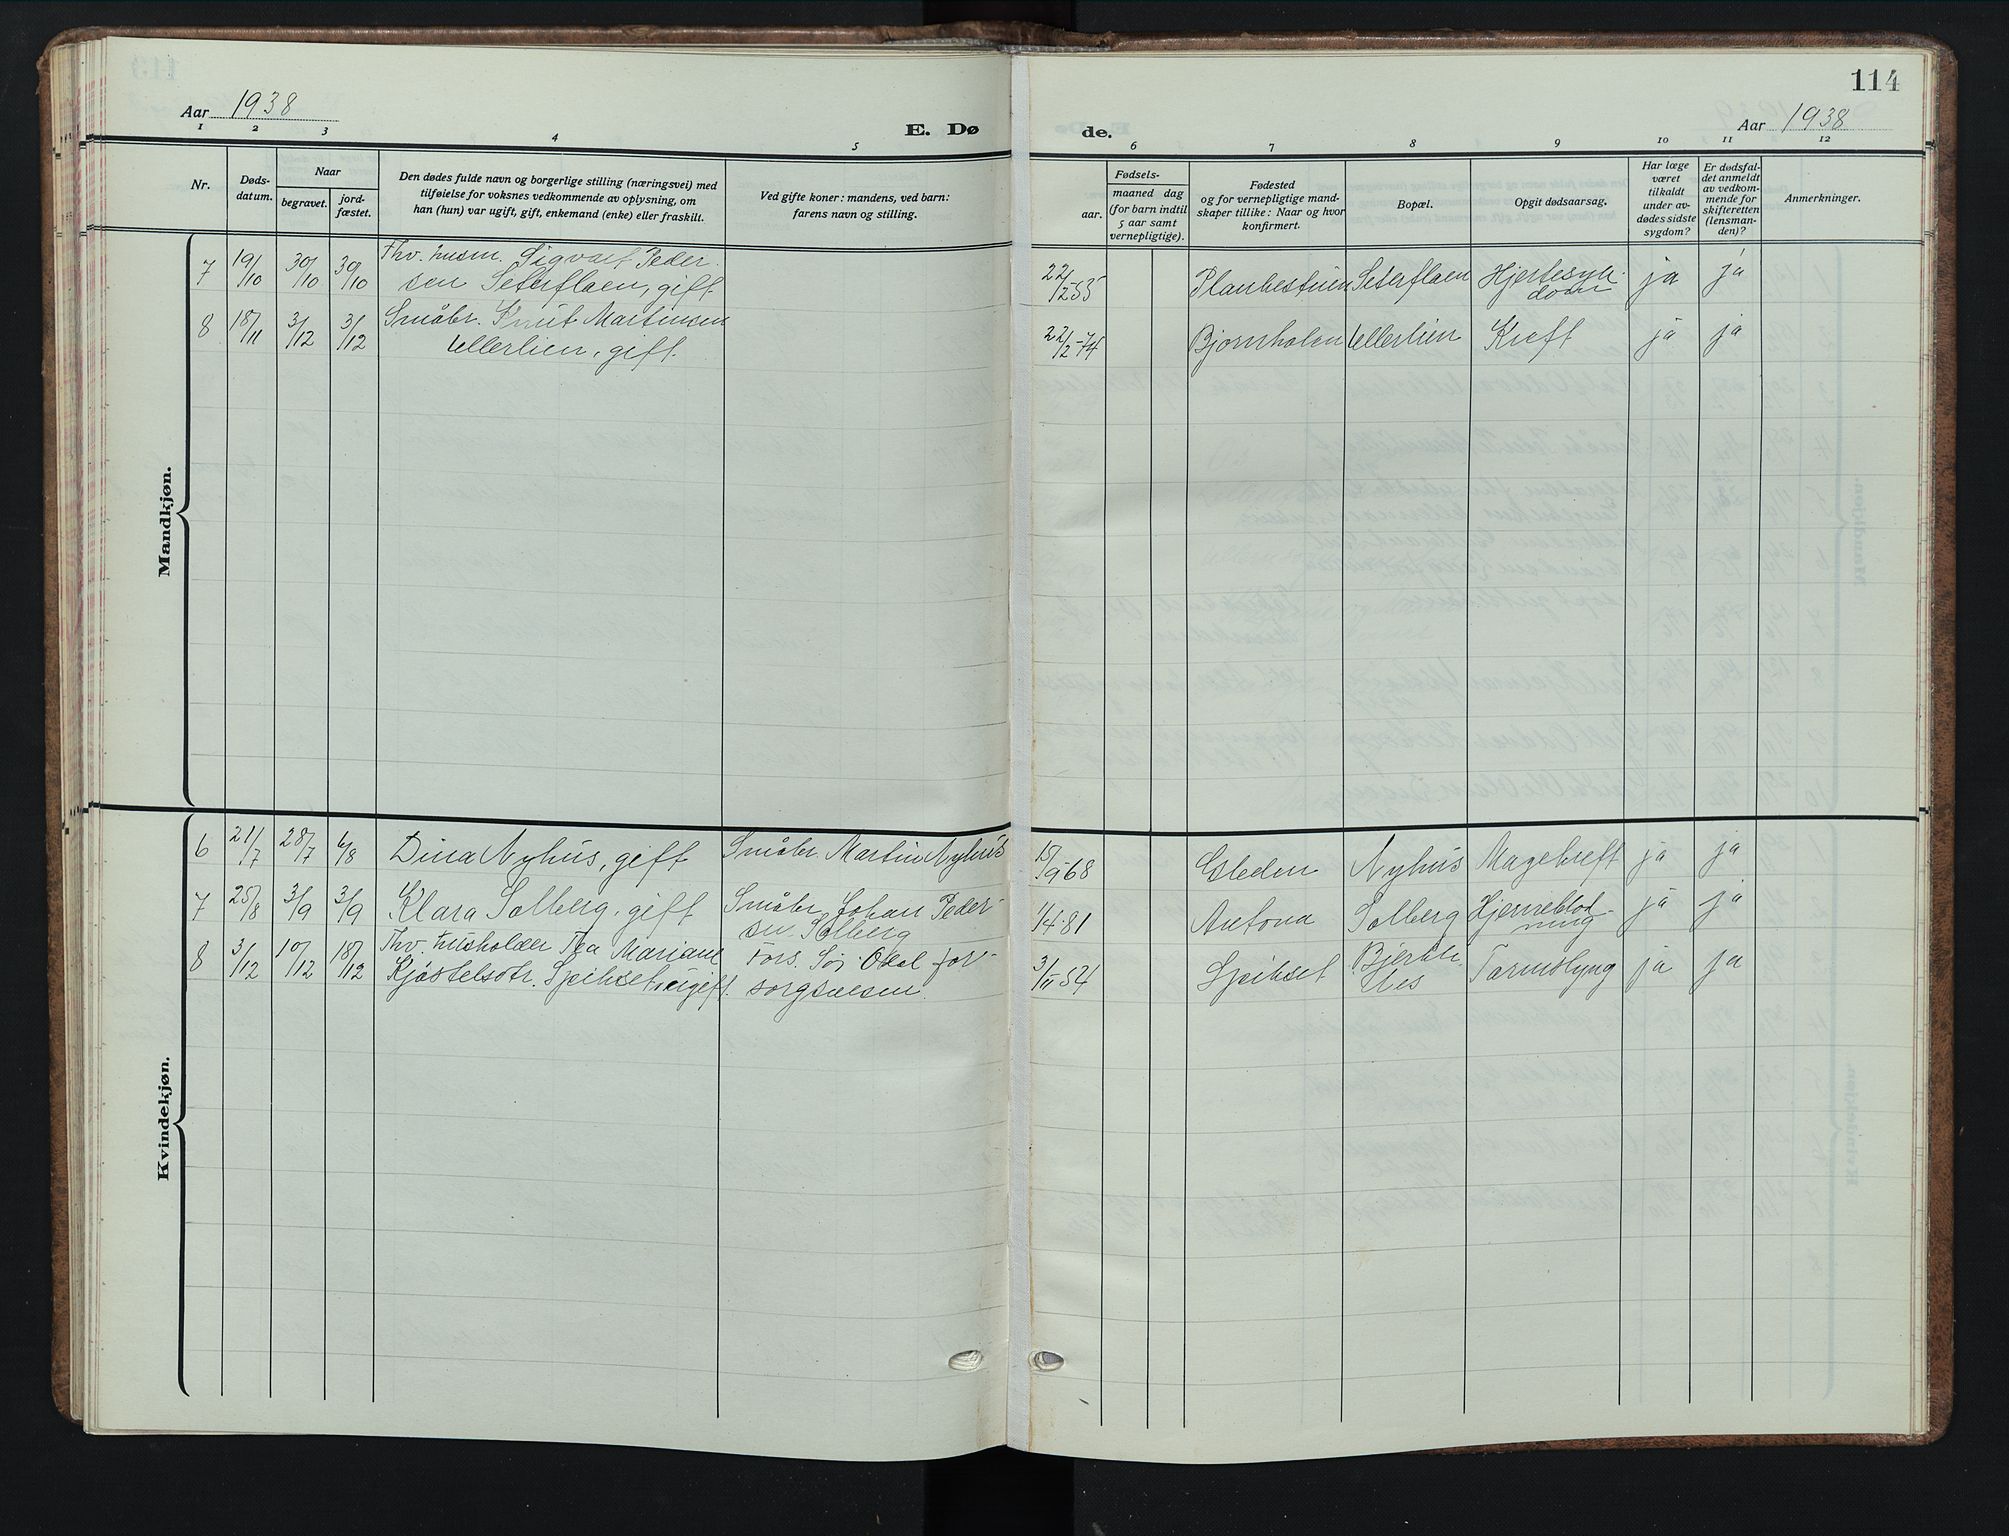 114
Aar 1938
E. Dø
de.
Aar 1938
1 2 3 4 5 6 7 8 9 10 11 12
Nr.
Døds-
datum.
Naar
begravet.
jord-
fæstet.
Den dødes fulde navn og borgerlige stilling (næringsvei) med
tilføielse for voksnes vedkommende av oplysning, om
han (hun) var ugift, gift, enkemand (enke) eller fraskilt.
Ved gifte koner: mandens, ved barn:
farens navn og stilling.
Fødsels-
aar.
maaned dag
(for barn indtil
5 aar samt
vernepligtige).
Fødested
og for vernepligtige mand-
skaper tillike: Naar og hvor
konfirmert.
Bopæl.
Opgit dødsaarsag.
Har læge
været
tilkaldt
under av-
dødes sidste
sygdom?
Er dødsfal-
det anmeldt
av vedkom-
mende for
skifteretten
(lensman-
den)?
Anmerkninger.
Mandkjøn.
7 19/10 30/10 30/10 Fhv. husm. Sigvart Peder-
sen Seterflaen, gift 22/12-53 Planbestuen Seterflaen Hjertesyk-
dom ja ja
8 18/11 3/12 3/12 Småbr. Knut Martinsen
Ullerlien, gift. 22/2-74 Bjørnholen Ullerlien Kreft ja ja
Kvindekjøn.
6 21/7 28/7 6/8 Dina Nyhus, gift Småbr. Martin Nyhus 15/9-68 Gleden Nyhus Magekreft ja ja
7 25/8 3/9 3/9 Klara Solberg, gift Småbr. Johan Peder-
sen Solberg 1/4-81 Antona Solberg Hjerneblød-
ning ja ja
8 3/12 10/12 18/12 Fhv. husholder Tea Mariane
Kjøstelsdtr. Speikset, ugift. Fors. Sør-Odal for-
sorgsvesen. 3/11 54 Speikset Bjerke-
nes Tarmslyng ja ja